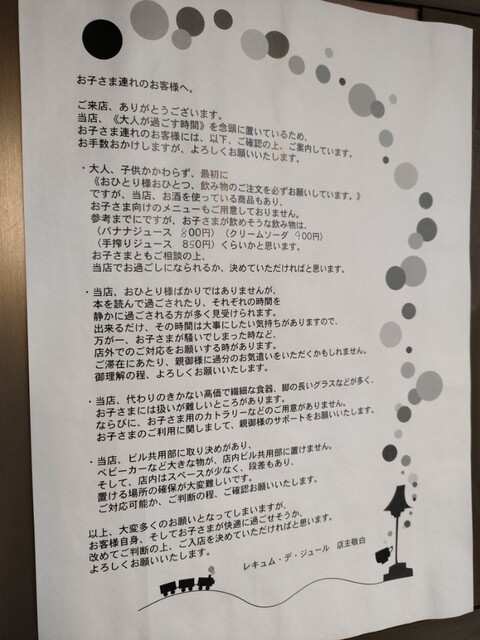 お子さま連れのお客様へ。
ご来店、ありがとうございます。
当店、《大人が過ごす時間》を念頭に置いているため、
お子さま連れのお客様には、以下、ご確認の上、ご案内しています。
お手数おかけしますが、よろしくお願いいたします。
・大人、子供かかわらず、最初に
《おひとり様おひとつ、飲み物のご注文を必ずお願いしています。》
ですが、当店、お酒を使っている商品もあり、
お子さま向けのメニューもご用意しておりません。
参考までにですが、お子さまが飲めそうな飲み物は、
(バナナジュース 800円)(クリームソーダ 900円)
(手搾りジュース 850円)くらいかと思います。
お子さまともご相談の上、
当店でお過ごしになられるか、決めていただければと思います。
・当店、おひとり様ばかりではありませんが、
本を読んで過ごされたり、それぞれの時間を
静かに過ごされる方が多く見受けられます。
出来るだけ、その時間は大事にしたい気持ちがありますので、
万が一、お子さまが騒いでしまった時など、
店外でのご対応をお願いする時があります。
ご滞在にあたり、親御様に過分のお気遣いをいただくかもしれません。
御理解の程、よろしくお願いいたします。
・当店、代わりのきかない高価で繊細な食器、脚の長いグラスなどが多く、
お子さまには扱いが難しいところがあります。
ならびに、お子さま用のカトラリーなどのご用意がありません。
お子さまのご利用に関しまして、親御様のサポートをお願いいたします。
・当店、ビル共用部に取り決めがあり、
ベビーカーなど大きな物が、店内ビル共用部に置けません。
そして、店内はスペースが少なく、段差もあり、
置ける場所の確保が大変難しいです。
ご対応可能か、ご判断の程、ご確認お願いいたします。
以上、大変多くのお願いとなってしまいますが、
お客様自身、そしてお子さまが快適に過ごせそうか、
改めてご判断の上、ご入店を決めていただければと思います。
よろしくお願いいたします。
レキュム・デ・ジュール 店主敬白